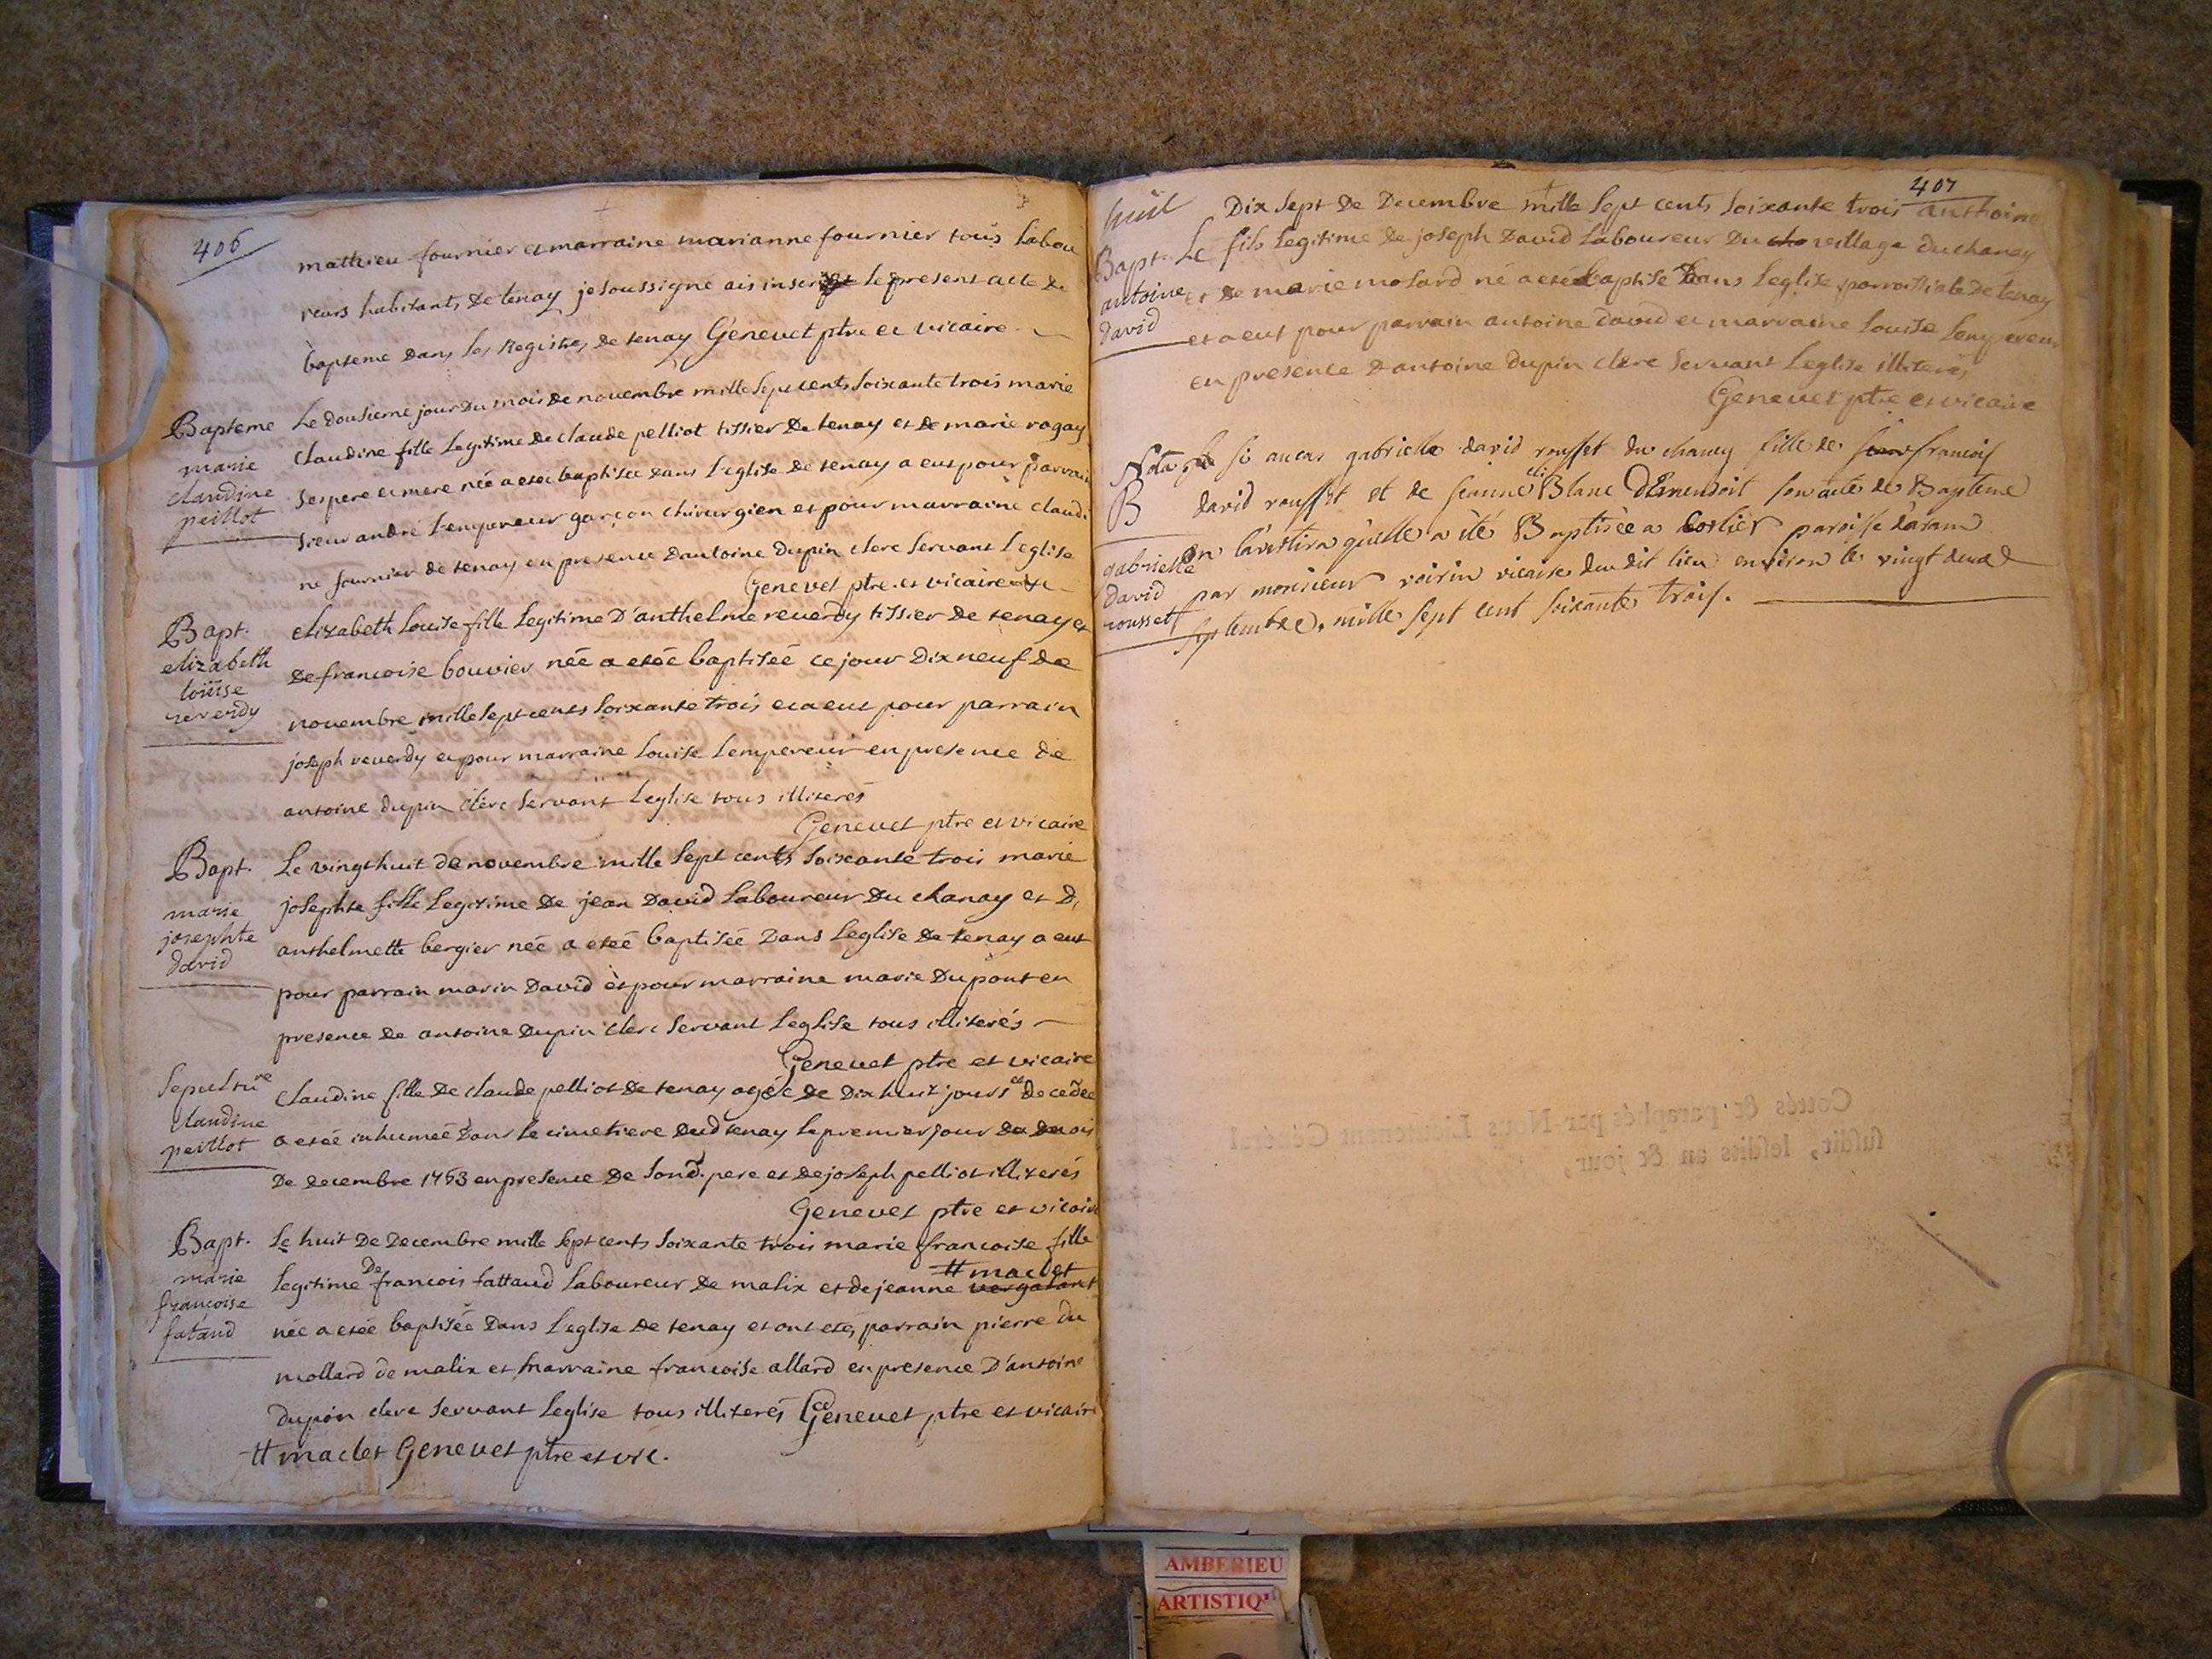 406
mathieu fournier et marraine marianne fournier tous labou
reurs habitants de tenay je soussigne ais inscript le present acte de
bapteme dans les Registres de tenay Genevet ptre et vicaire
Bapteme
marie
claudine
peillot
Le dousieme jour du mois de novembre mille sept cents soixante trois marie
claudine fille legitime de claude pelliot tissier de tenay et de marie ragay
ses pere et mere née a eteé baptisée dans l'eglise de tenay a eut pour parrain
sieur andré Lempereur garçon chirurgien et pour marraine claudi
ne fournier de tenay en presence d'antoine dupin clerc servant l'eglise
Genevet ptre et vicaire
Bapt.
elizabeth
loüise
reverdy
elizabeth Louise fille legitime D'anthelme reverdy tissier de tenay et
de francoise bouvier née a eteé baptiseé ce jour dix neuf de
novembre mille sept cents soixante trois et a eut pour parrain
joseph reverdy et pour marraine Louise Lempereur en presence de
antoine dupin clerc servant leglise tous illiterés
Genevet ptre et vicaire
Bapt.
marie
josephte
david
Le vingt huit de novembre mille sept cents soixante trois marie
josephte fille legitime de jean David laboureur du chanay et D,
anthelmette bergier née a eteé baptiséé dans leglise de tenay a eut
pour parrain marin David et pour marraine marie Dupont en
presence de antoine dupin clerc servant leglise tous illiterés
Genevet ptre et vicaire
sepulture
claudine
peillot
claudine fille de claude pelliot de tenay agée de dix huit jours et decedeé
a eteé inhumeé dans le cimetiere dud tenay le premier jour du mois
de decembre 1763 en presence de sond. pere et de joseph pelliot illiterés
Genevet ptre et vicaire
Bapt.
marie
françoise
fataud
Le huit de decembre mille sept cents soixante trois marie francoise fille
# maclet
legitime De francois fattaud laboureur de malix et de jeanne vergatant
née a eteé baptisée dans l'eglise de tenay et ont eté, parrain pierre du
mollard de malix et marraine francoise allard en presence D'antoine
dupin clerc servant leglise tous illiterés Genevet ptre et vicaire
# maclet Genevet ptre et vic.
407
huit
Bapt.
antoine
david
Dix sept de decembre mille sept cents soixante trois anthoine
Le fils legitime de joseph David laboureur du cha veillage du chaney
et de marie molard né a eté baptisé dans leglise parroissiale de tenay
et a eut pour parrain antoine david et marraine louise Lempereur
en presence d'antoine dupin clerc servant leglise illiterés
Genevet ptre et vicaire
B
gabrielle
david
rousset
Nota si aucas gabrielle david rousset du chaney fille de francois
david rousset et de jeanne Blanc demendoit son acte de Bapteme
on l'avertira qu'elle a été Baptisée a Corlier paroisse d'aran
par monsieur voirin vicaire du dit lieu environ le vingt deux
septembre, mille sept cent soixante trois.
Cottés & paraphés par Nous Lieutenant Général
susdit, lesdits an & jour,
AMBERIEU
ARTISTIQ